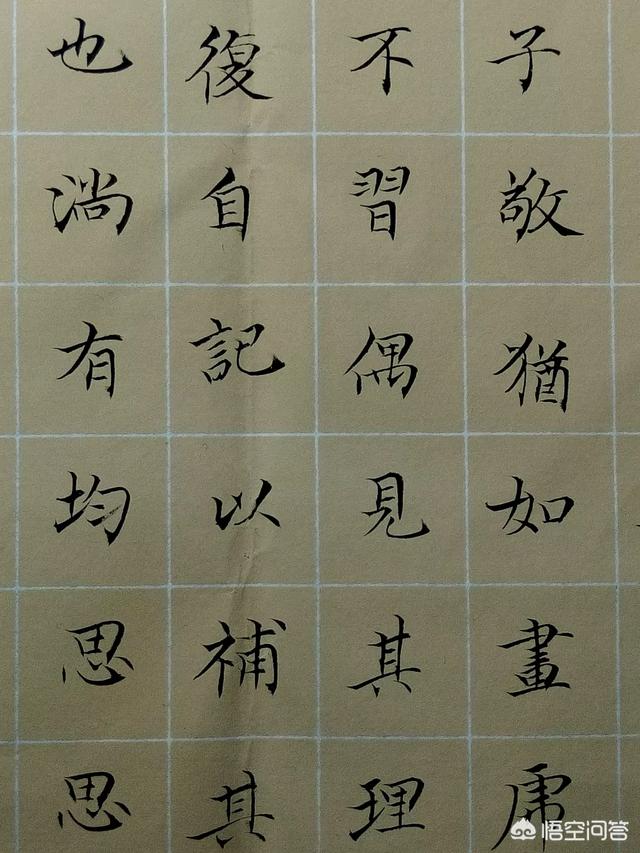 子敬猶如畫虎
不習偶見其理
復自記以補其
也淌有均思思
悟空问答